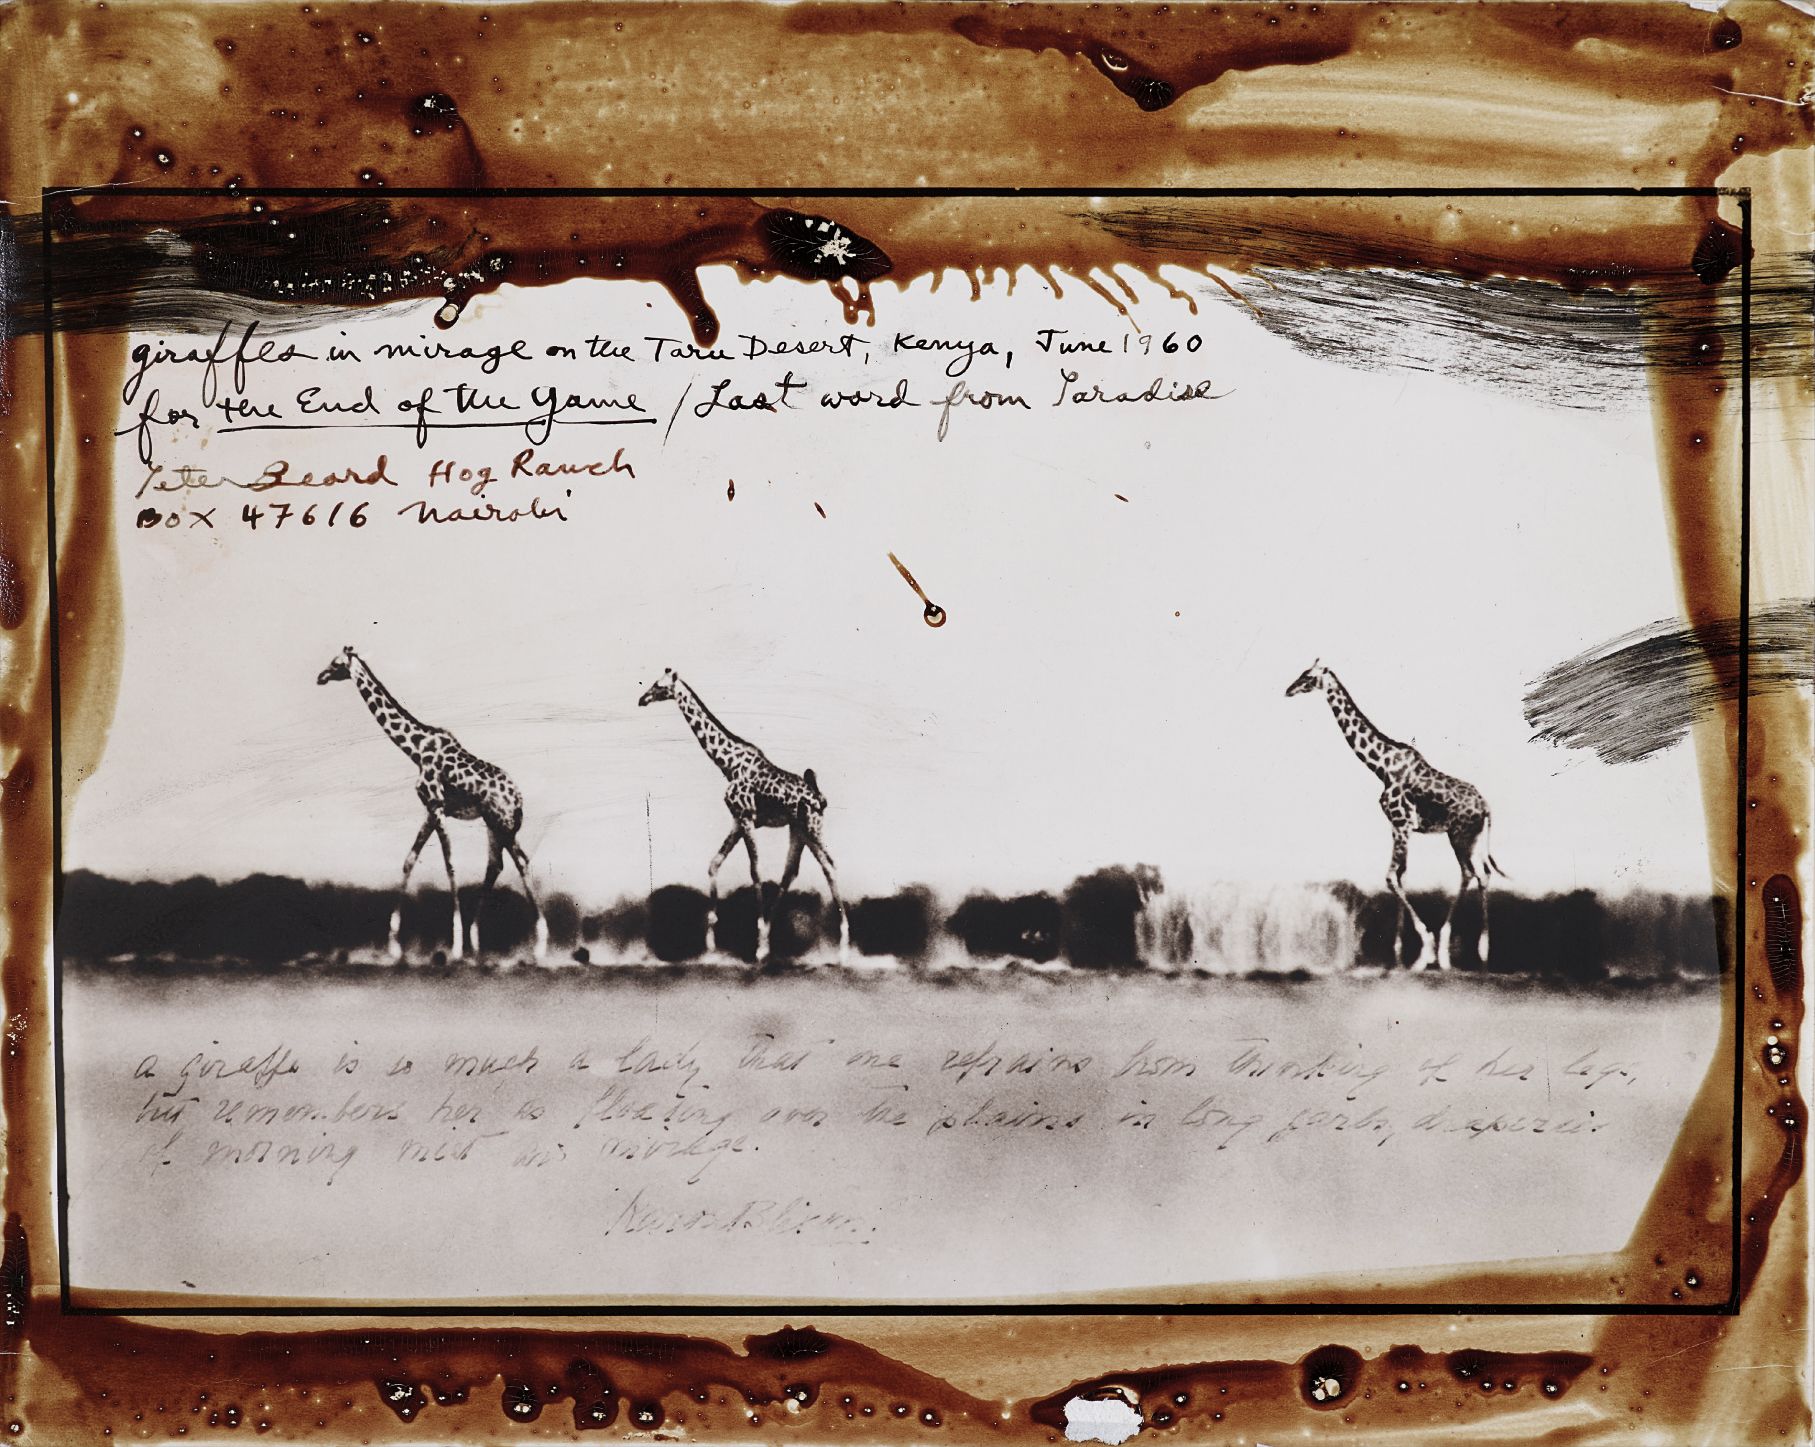 giraffes in mirage on the Taru Desert, Kenya, June 1960
for the End of the Game / Last word from Paradise
Peter Beard Hog Ranch
Box 47616 Nairobi
a giraffe is so much a lady that one refrains from thinking of her legs,
but remembers her as floating over the plains in long garbs, draperies
of morning mist
mirage.
Karen Blixen.